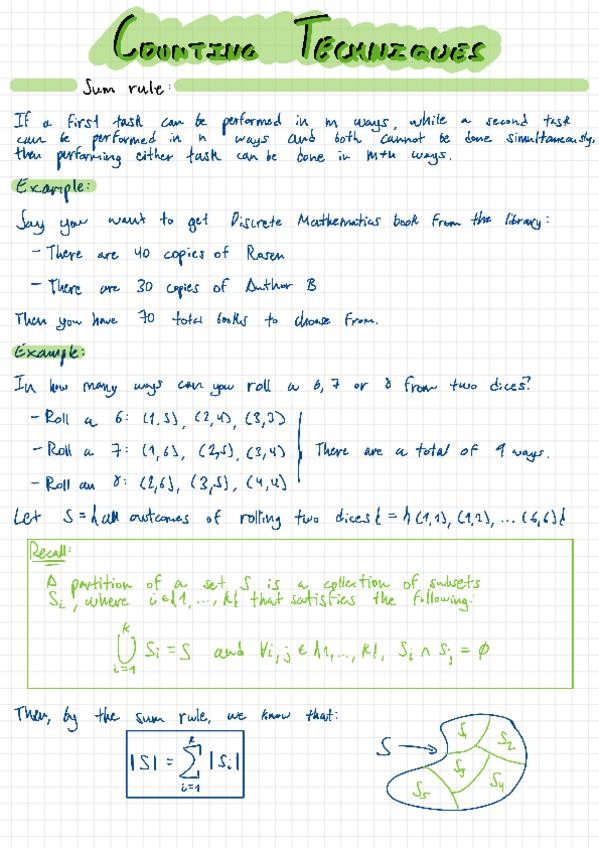 COUNTING TECHNIQUES
Sum rule:
If a first task can be performed in m ways, while a second task
can be performed in n ways and both cannot be done simultaneously,
then performing either task can be done in m+n ways.
Example:
Say you want to get Discrete Mathematics book from the library:
- There are 40 copies of Rosen
- There are 30 copies of Author B
Then you have 70 total books to choose from.
Example:
In how many ways can you roll a 6, 7 or 8 from two dices?
- Roll a 6: (1,5), (2,4), (3,3)
- Roll a 7: (1,6), (2,5), (3,4)
There are a total of 9 ways.
- Roll an 8: (2,6), (3,5), (4,4)
Let S = {all outcomes of rolling two dices} = {(1,1), (1,2), ... (6,6)}
Recall:
A partition of a set S is a collection of subsets
Si, where i∈{1,...,k} that satisfies the following:
k
⋃ Si = S and ∀i,j ∈ {1,...,k}, Si ∩ Sj = ∅
i=1
Then, by the sum rule, we know that:
k
|S| = ∑ |Si|
i=1
S
S1
S2
S3
S4
S5